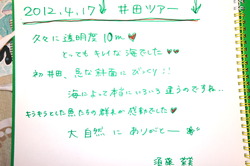 2012.4.17 井田ツアー
久々に透明度10m
とってもキレイな海でした
初井田、急な斜面にびっくり!!
海によって本当にいろいろ違うのですね…
キラキラとした魚たちの群れが感動でした
大自然にありがとー